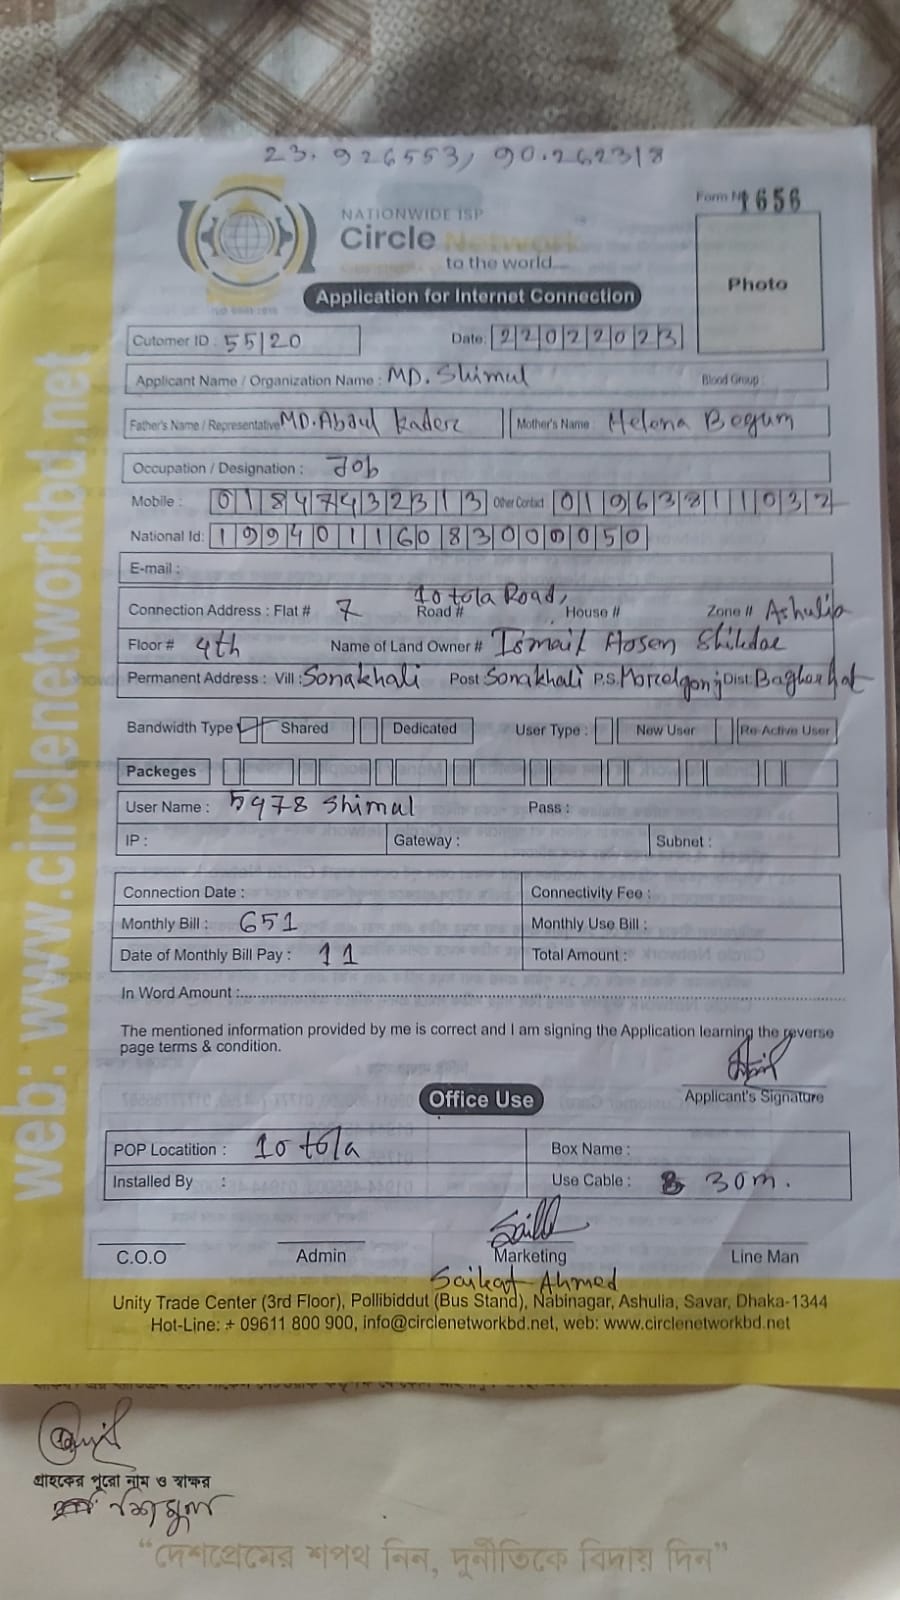 23.926553, 90.262318
Form N 1656
NATIONWIDE ISP
Circle Network
to the world...
Photo
Application for Internet Connection
Cutomer ID : 55120 Date: 22022023
Applicant Name / Organization Name : MD. Shimul Blood Group :
Father's Name / Representative MD. Abdul Kader Mother's Name : Helena Begum
Occupation / Designation : Job
Mobile : 01847432313 Other Contact 01963811032
National Id: 19940116083000050
E-mail :
Connection Address : Flat # 7 Road # 10 tola Road, House # Zone # Ashulia
Floor # 4th Name of Land Owner # Ismail Hosen Shikdar
Permanent Address : Vill : Sonakhali Post Sonakhali P.S. Morrelgonj Dist: Bagherhat
Bandwidth Type Shared Dedicated User Type : New User Re-Active User
Packeges
User Name : 5978 Shimul Pass :
IP : Gateway : Subnet :
Connection Date : Connectivity Fee :
Monthly Bill : 651 Monthly Use Bill :
Date of Monthly Bill Pay : 11 Total Amount :
In Word Amount :
The mentioned information provided by me is correct and I am signing the Application learning the reverse
page terms & condition.
Applicant's Signature
Office Use
POP Locatition : 10 tola Box Name :
Installed By : Use Cable : 30m.
C.O.O Admin Marketing Line Man
Saikat Ahmed
Unity Trade Center (3rd Floor), Pollibiddut (Bus Stand), Nabinagar, Ashulia, Savar, Dhaka-1344
Hot-Line: + 09611 800 900, info@circlenetworkbd.net, web: www.circlenetworkbd.net
web: www.circlenetworkbd.net
গ্রাহকের পুরো নাম ও স্বাক্ষর
শিমুল
“দেশপ্রেমের শপথ নিন, দুর্নীতিকে বিদায় দিন”